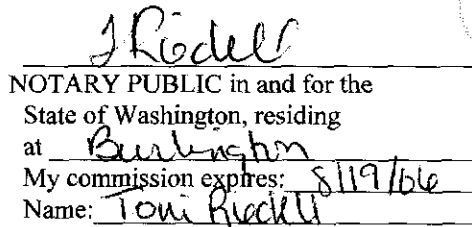 T Riedell
NOTARY PUBLIC in and for the
State of Washington, residing
at Burlington
My commission expires: 8/19/06
Name: Toni Riedell